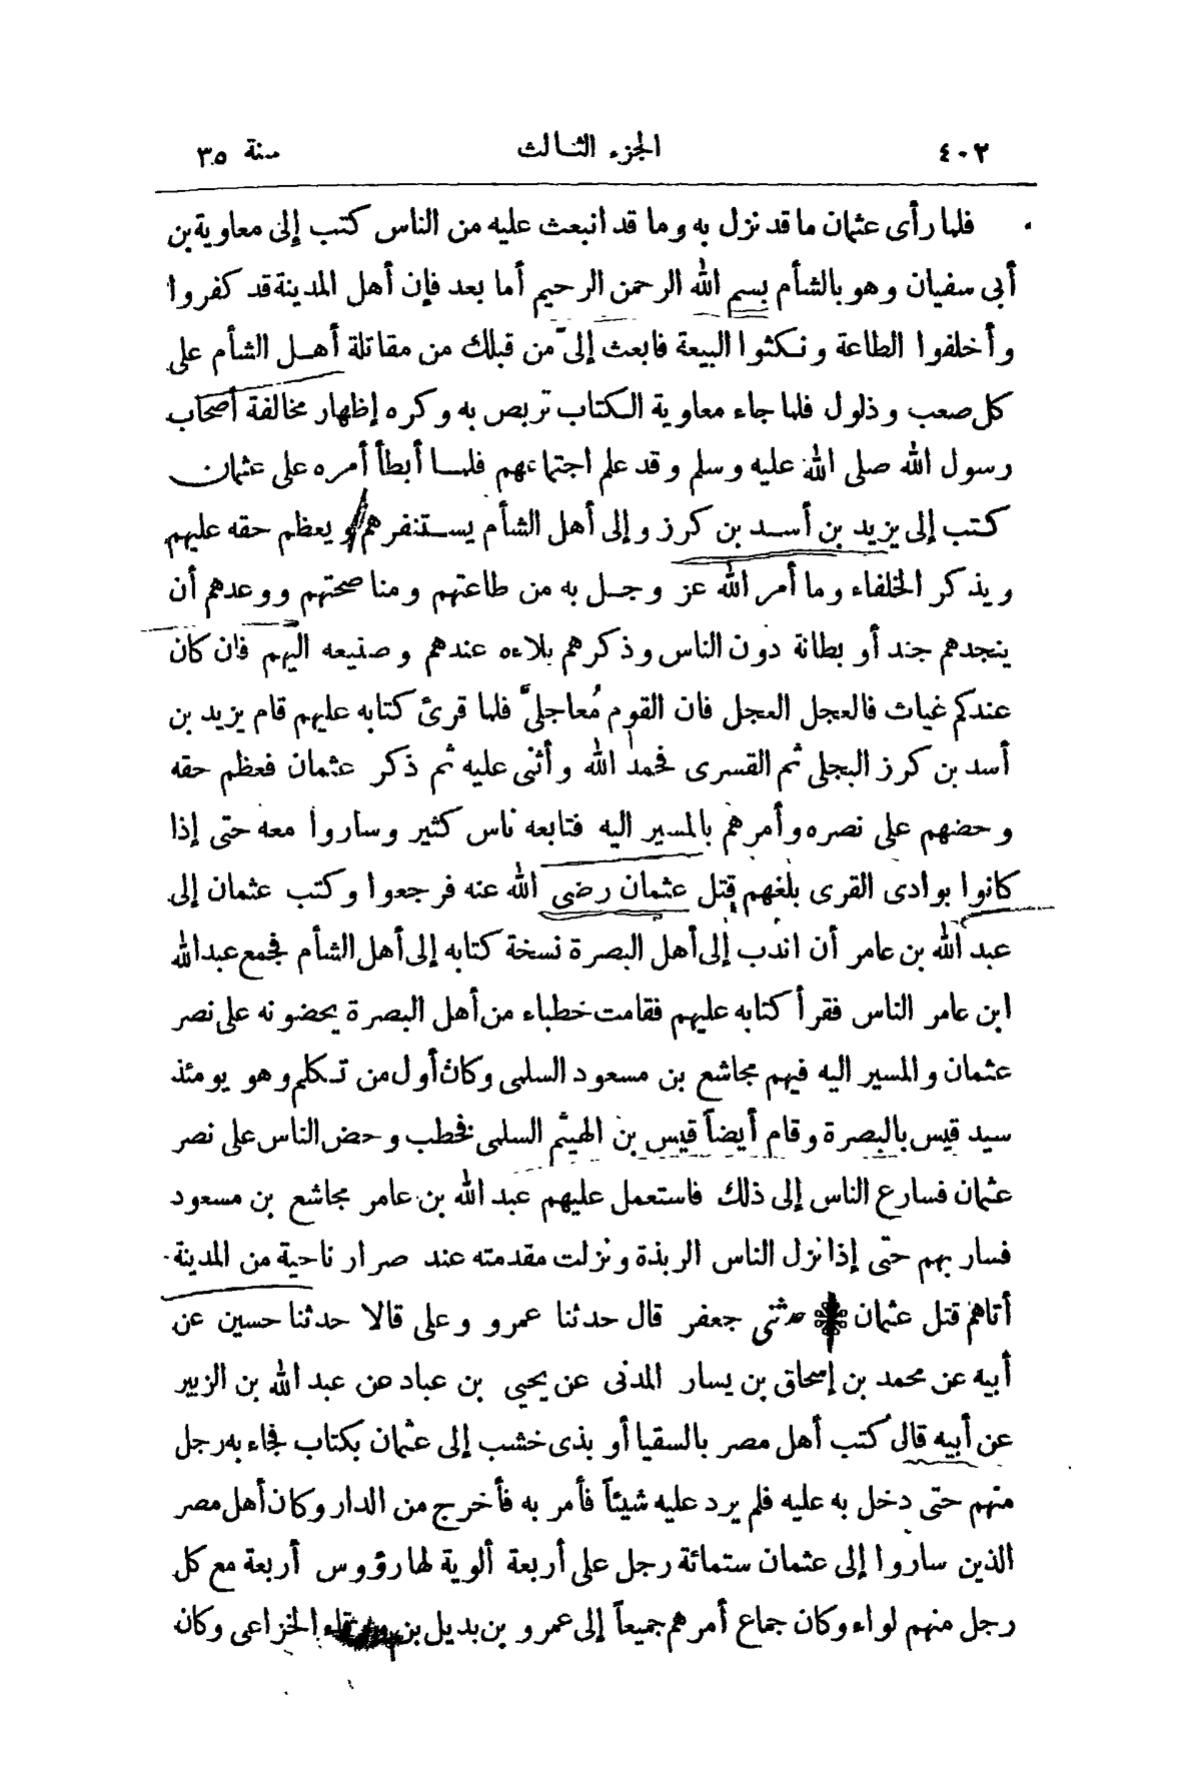 ٤٠٢ الجزء الثالث سنة ٣٥
فلما رأى عثمان ما قد نزل به وما قد انبعث عليه من الناس كتب إلى معاوية بن
أبى سفيان وهو بالشأم بسم الله الرحمن الرحيم أما بعد فإن أهل المدينة قد كفروا
وأخلفوا الطاعة ونكثوا البيعة فابعث إلىّ من قبلك من مقاتلة أهل الشأم على
كل صعب وذلول فلما جاء معاوية الكتاب تربص به وكره إظهار مخالفة أصحاب
رسول الله صلى الله عليه وسلم وقد علم اجتماعهم فلما أبطأ أمره على عثمان
كتب إلى يزيد بن أسد بن كرز وإلى أهل الشأم يستنفرهم ويعظم حقه عليهم
ويذكر الخلفاء وما أمر الله عز وجل به من طاعتهم ومناصحتهم ووعدهم أن
ينجدهم جند أو بطانة دون الناس وذكرهم بلاءه عندهم وصنيعه اليهم فان كان
عندكم غياث فالعجل العجل فان القوم مُعاجلىّ فلما قرئ كتابه عليهم قام يزيد بن
أسد بن كرز البجلى ثم القسرى فحمد الله وأثنى عليه ثم ذكر عثمان فعظم حقه
وحضهم على نصره وأمرهم بالمسير اليه فتابعه ناس كثير وساروا معه حتى إذا
كانوا بوادى القرى بلغهم قتل عثمان رضى الله عنه فرجعوا وكتب عثمان إلى
عبد الله بن عامر أن اندب إلى أهل البصرة نسخة كتابه إلى أهل الشأم فجمع عبدالله
ابن عامر الناس فقرأ كتابه عليهم فقامت خطباء من أهل البصرة يحضونه على نصر
عثمان والمسير اليه فيهم مجاشع بن مسعود السلمى وكان أول من تكلم وهو يومئذ
سيد قيس بالبصرة وقام أيضاً قيس بن الهيثم السلمى فخطب وحض الناس على نصر
عثمان فسارع الناس إلى ذلك فاستعمل عليهم عبد الله بن عامر مجاشع بن مسعود
فسار بهم حتى إذا نزل الناس الربذة ونزلت مقدمته عند صرار ناحية من المدينة
أتاهم قتل عثمان * حدثنى جعفر قال حدثنا عمرو وعلى قالا حدثنا حسين عن
أبيه عن محمد بن إسحاق بن يسار المدنى عن يحيى بن عباد عن عبد الله بن الزبير
عن أبيه قال كتب أهل مصر بالسقيا أو بذى خشب إلى عثمان بكتاب فجاء به رجل
منهم حتى دخل به عليه فلم يرد عليه شيئاً فأمر به فأخرج من الدار وكان أهل مصر
الذين ساروا إلى عثمان ستمائة رجل على أربعة ألوية لها رؤوس أربعة مع كل
رجل منهم لواء وكان جماع أمرهم جميعاً إلى عمرو بن بديل بن ورقاء الخزاعى وكان